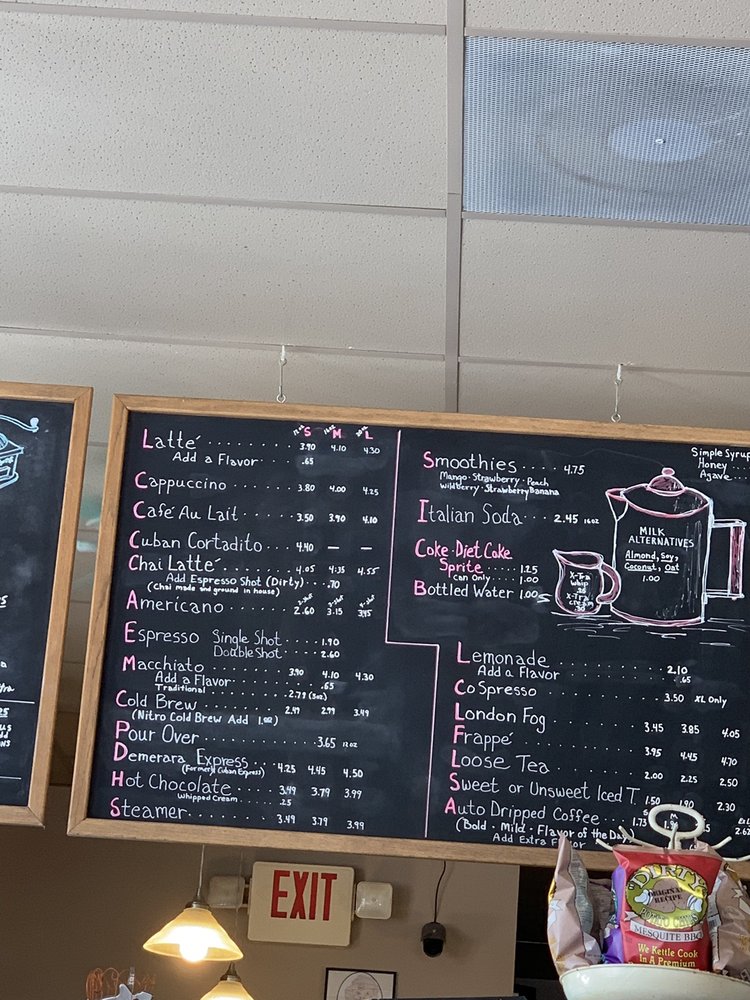 12oz S 16oz M 20oz L
Latté 3.90 4.10 4.30
Add a Flavor .65
Cappuccino 3.80 4.00 4.25
Café Au Lait 3.50 3.90 4.10
Cuban Cortadito 4.40 — —
Chai Latté 4.05 4.35 4.55
Add Espresso Shot (Dirty) .70
(Chai made and ground in house)
Americano 2.60 3.15 3.45
Espresso Single Shot 1.90
Double Shot 2.60
Macchiato 3.90 4.10 4.30
Add a Flavor .65
Traditional 2.79 (3oz)
Cold Brew 2.49 2.99 3.49
(Nitro Cold Brew Add 1.00)
Pour Over 3.65 12oz
Demerara Express 4.25 4.45 4.50
(Formerly Cuban Express)
Hot Chocolate 3.49 3.79 3.99
Whipped Cream .25
Steamer 3.49 3.79 3.99
Smoothies 4.75
Mango · Strawberry · Peach
Wildberry · Strawberry Banana
Italian Soda 2.45 16oz
Coke · Diet Coke
Sprite 1.25
Can Only 1.00
Bottled Water 1.00
Simple Syrup
Honey
Agave
MILK
ALTERNATIVES
Almond, Soy,
Coconut, Oat
1.00
X-Tra
whip
X-Tra
cream
Lemonade 2.10
Add a Flavor .65
CoSpresso 3.50 XL Only
London Fog 3.45 3.85 4.05
Frappé 3.95 4.45 4.70
Loose Tea 2.00 2.25 2.50
Sweet or Unsweet Iced T. 1.50 1.90 2.30
Auto Dripped Coffee 1.75
(Bold · Mild · Flavor of the Day)
Add Extra Flavor
EXIT
"DIRTY"
ORIGINAL
RECIPE
POTATO CHIPS
MESQUITE BBQ
We Kettle Cook
In A Premium